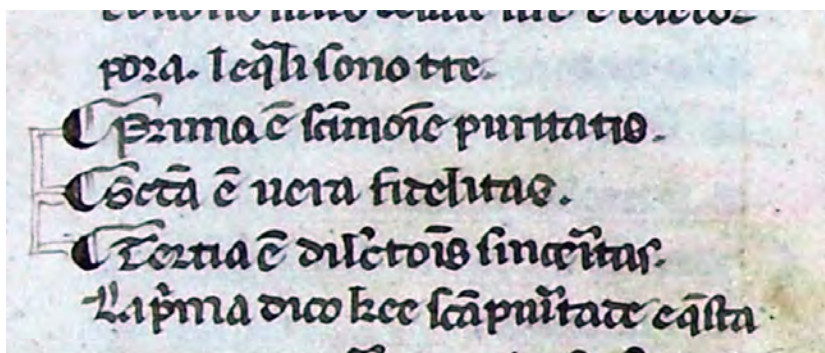 pora. leq̃li sono tre.
¶ Prima ẽ sc̃imoĩe puritatis.
¶ Sec̃ta ẽ uera fidelitas.
¶ Tertia ẽ discretoĩs sinceritas.
La p̃ma dico kee sc̃a puritade eq̃sta